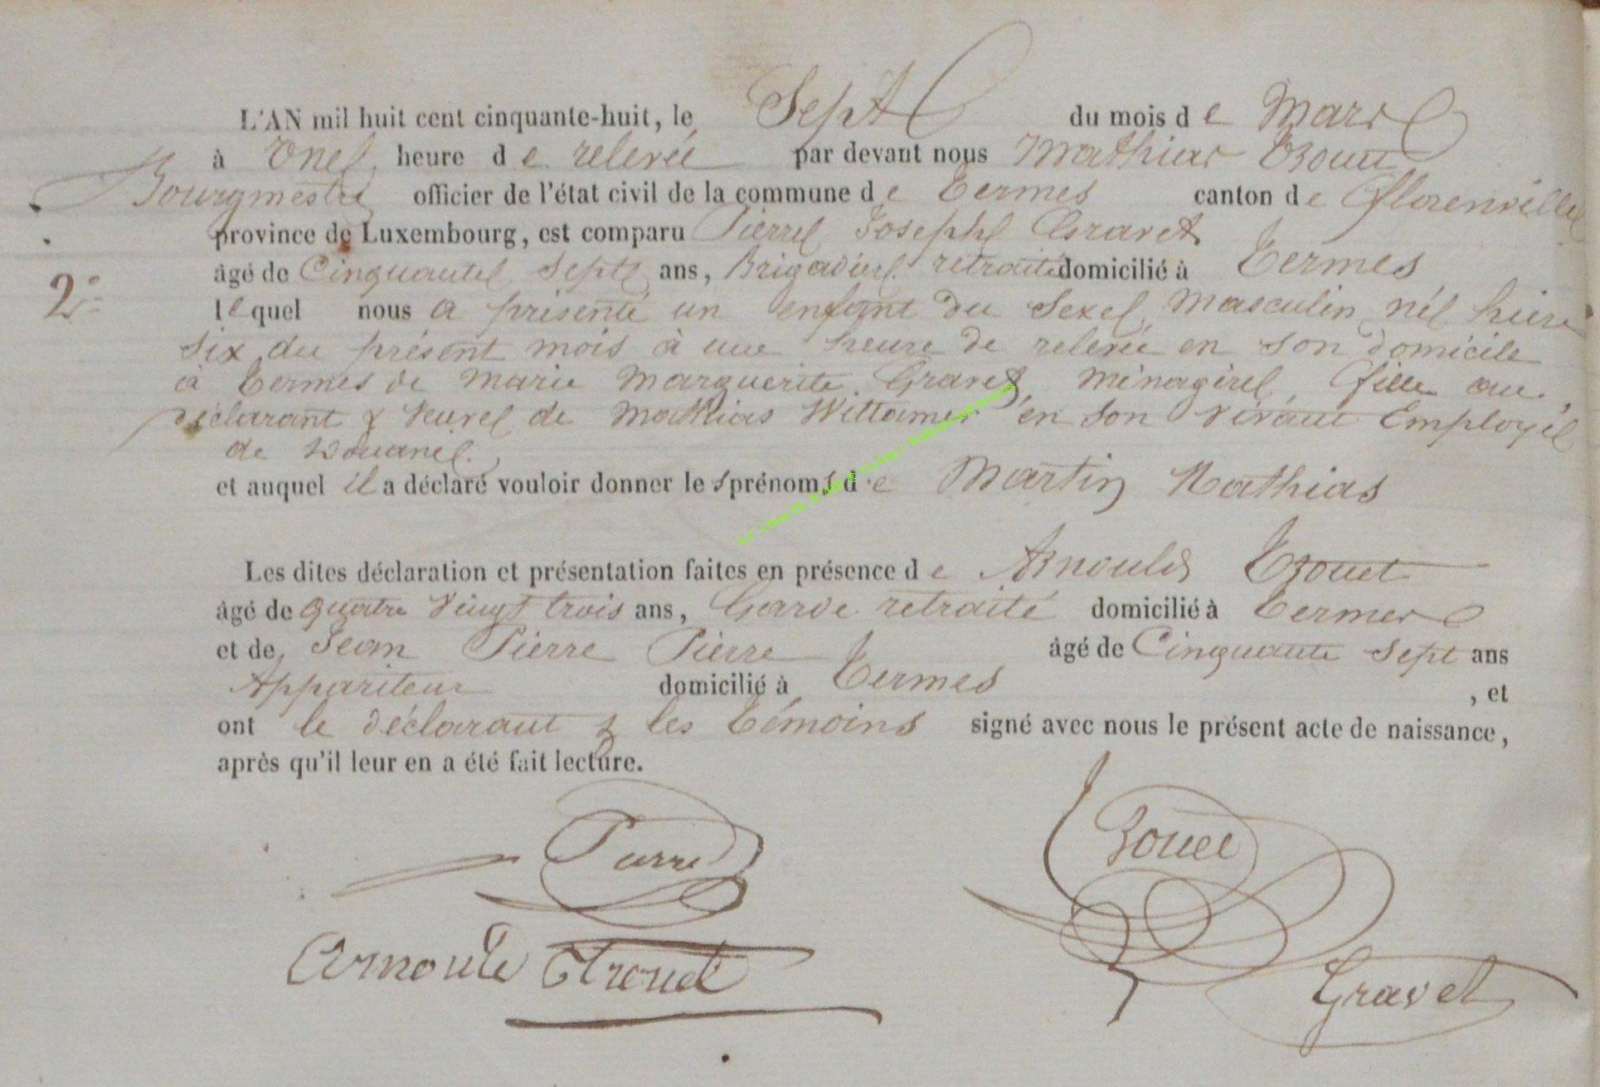 L'AN mil huit cent cinquante-huit, le Sept du mois de Mars
à Une heure de relevée par devant nous Mathias
Bourgmestre officier de l'état civil de la commune de Termes canton de Florenville
province de Luxembourg, est comparu Pierre Joseph Gravet
âgé de Cinquante Sept ans, Brigadier retraité domicilié à Termes
2°
lequel nous a présenté un enfant du Sexe Masculin né hier
six du présent mois à une heure de relevée en son domicile
à Termes de Marie Marguerite Gravet, Ménagère, fille au
déclarant & Veuve de Mathias Wittamer en son vivant Employé
de Douane.
et auquel il a déclaré vouloir donner les prénoms de Martin Mathias
Les dites déclaration et présentation faites en présence de Arnould Trouet
âgé de quatre Vingt trois ans, Garde retraité domicilié à Termes
et de Jean Pierre Pierre âgé de Cinquante Sept ans
Appariteur domicilié à Termes , et
ont le déclarant & les Témoins signé avec nous le présent acte de naissance,
après qu'il leur en a été fait lecture.
Pierre
Arnould Trouet
Gravet